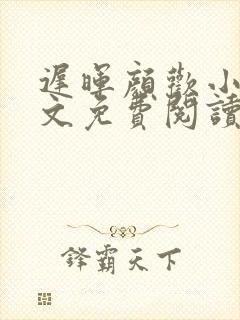 遲暉顏歡小
文免費閱讀
鋒霸天下